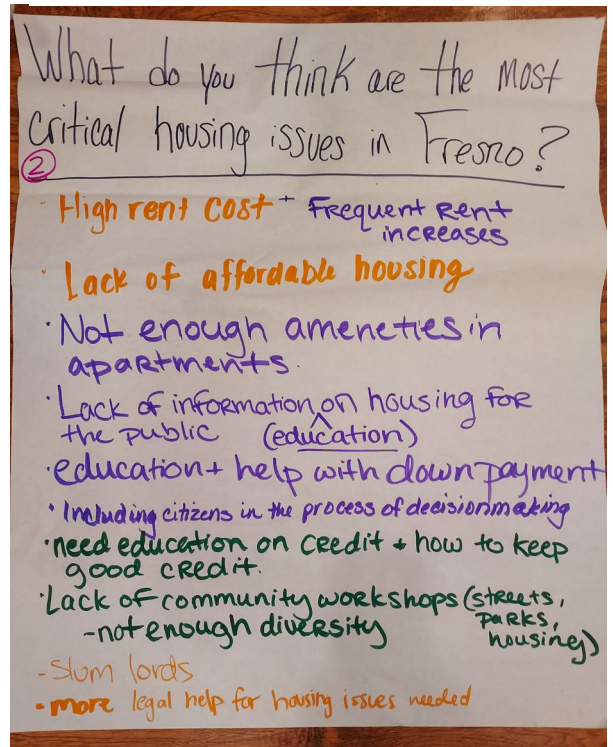 What do you think are the most
critical housing issues in Fresno?
2
· High rent cost + Frequent Rent
increases
· Lack of affordable housing
· Not enough ameneties in
apartments.
· Lack of information ^ on housing for
the public (education)
· education + help with down payment
· Including citizens in the process of decisionmaking
· need education on credit + how to keep
good credit.
· Lack of community workshops (streets,
parks,
- not enough diversity
housing)
- Slum lords
- more legal help for housing issues needed